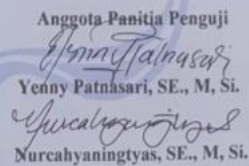 Anggota Panitia Penguji
Yenny Patnasari
Yenny Patnasari, SE., M, Si.
Nurcahyaningtyas
Nurcahyaningtyas, SE., M, Si.